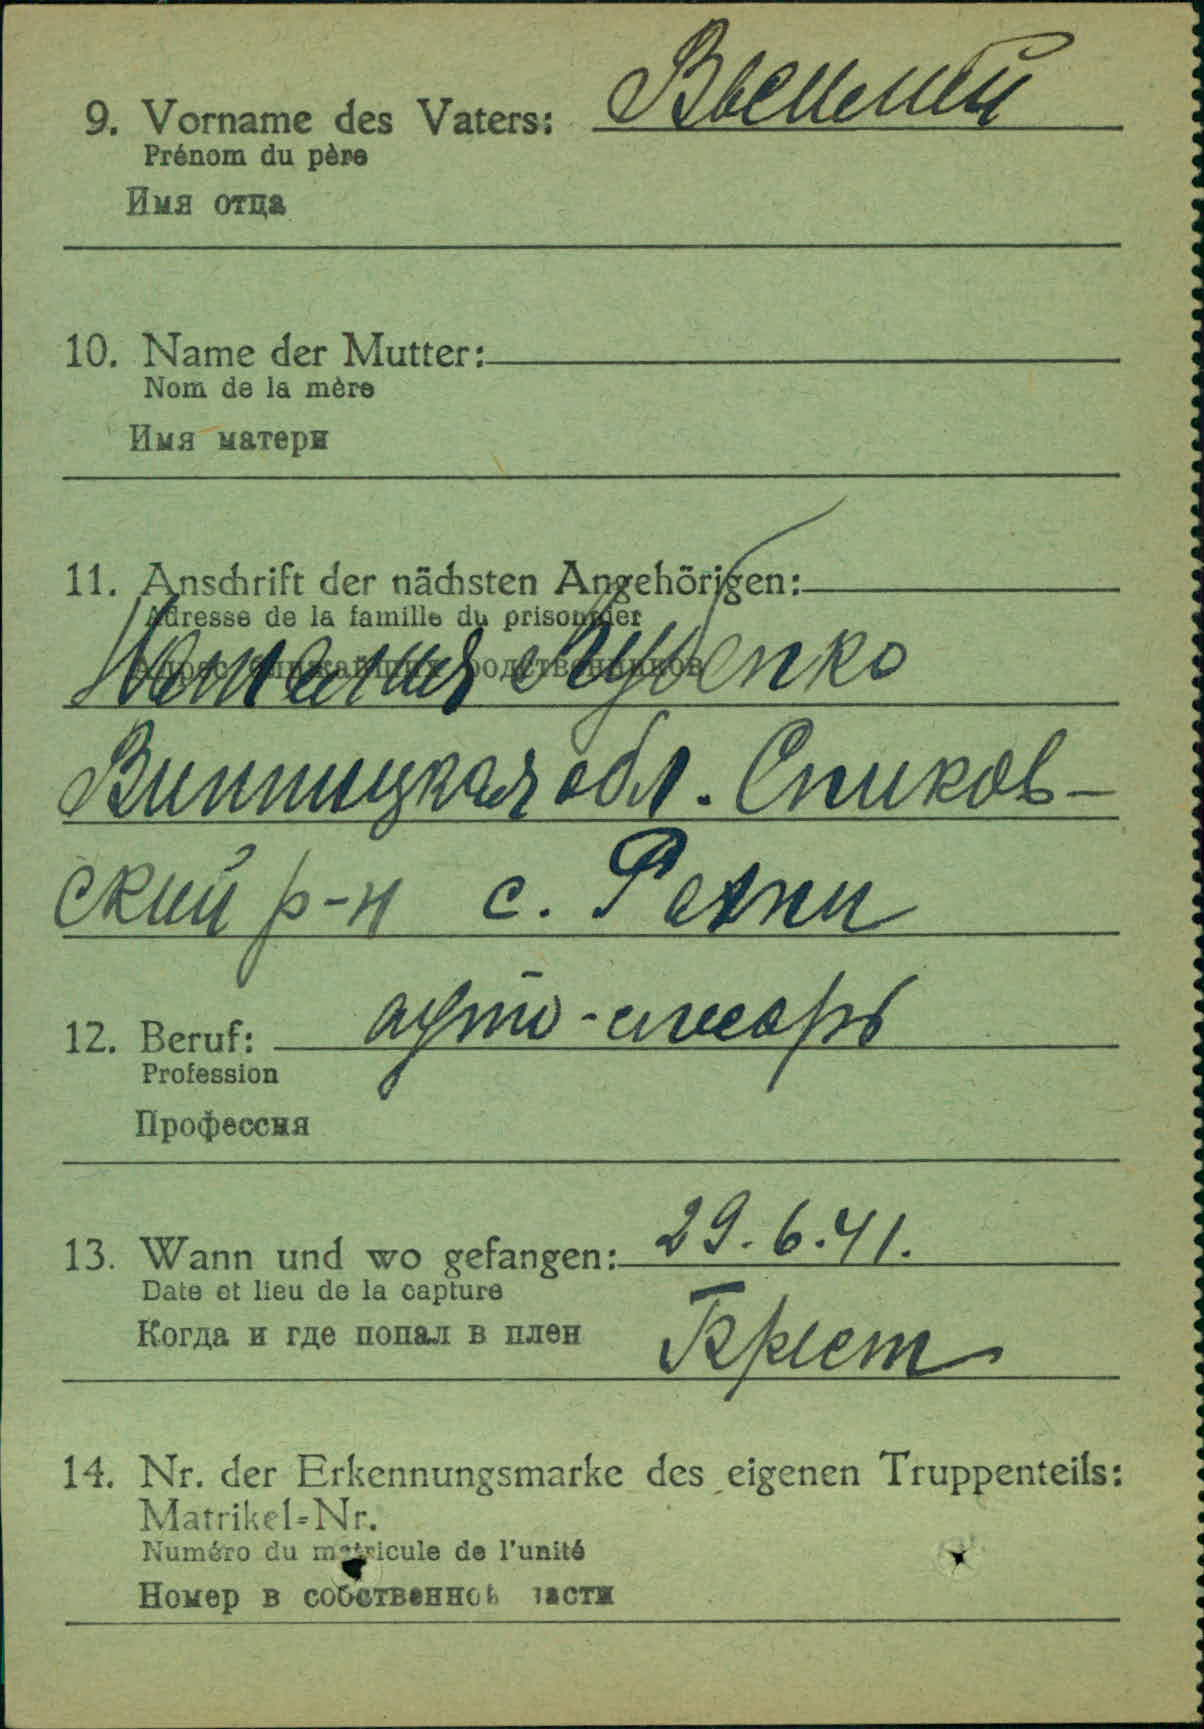 9. Vorname des Vaters:
Prénom du père
Имя отца
10. Name der Mutter:
Nom de la mère
Имя матери
11. Anschrift der nächsten Angehörigen:
Adresse de la famille du prisonnier
Адрес ближайших родственников
Наталия
Винницкая обл. Спиков-
ский р-н с.
12. Beruf: ауто-слесарь
Profession
Профессия
13. Wann und wo gefangen: 29.6.41.
Date et lieu de la capture
Когда и где попал в плен Брест
14. Nr. der Erkennungsmarke des eigenen Truppenteils:
Matrikel-Nr.
Numéro du matricule de l'unité
Номер в собственной части